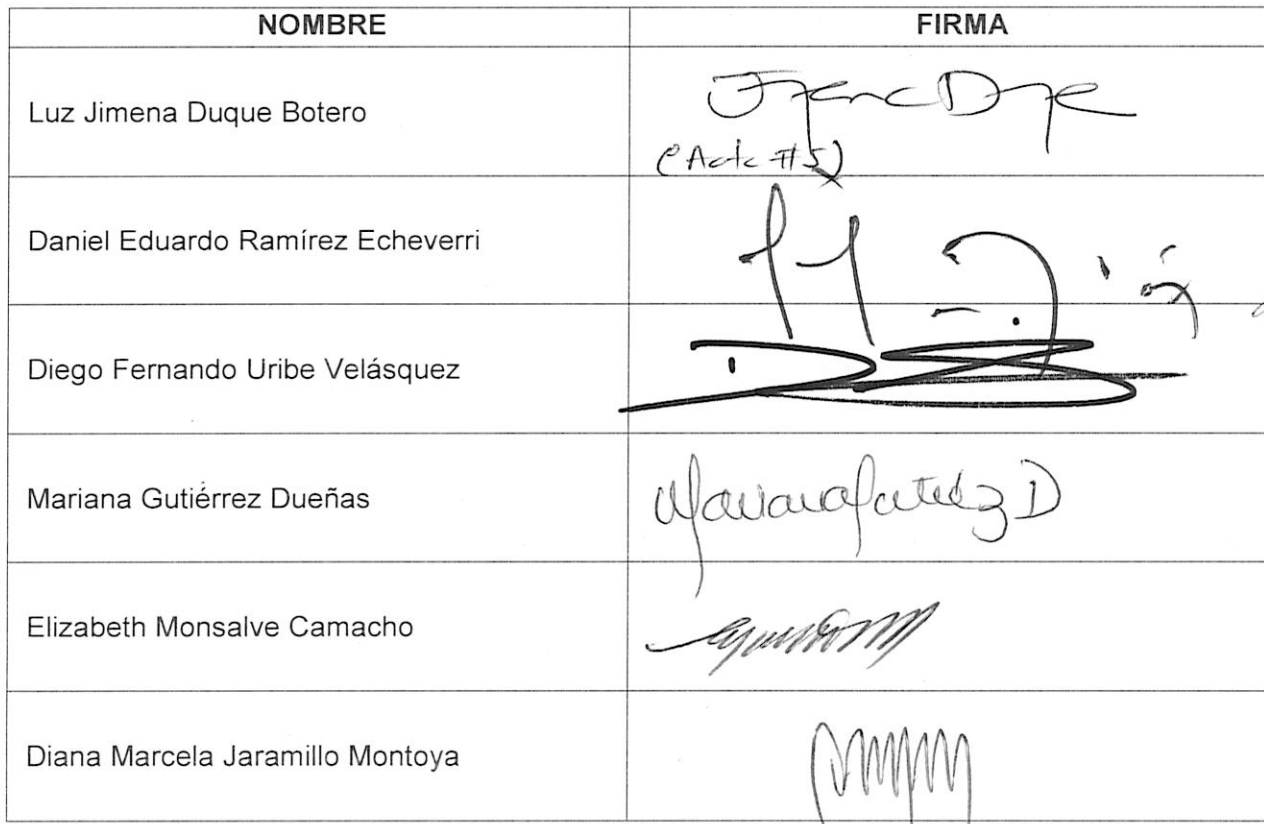 NOMBRE FIRMA
Luz Jimena Duque Botero
(Acta #5)
Daniel Eduardo Ramírez Echeverri
Diego Fernando Uribe Velásquez
Mariana Gutiérrez Dueñas
Elizabeth Monsalve Camacho
Diana Marcela Jaramillo Montoya